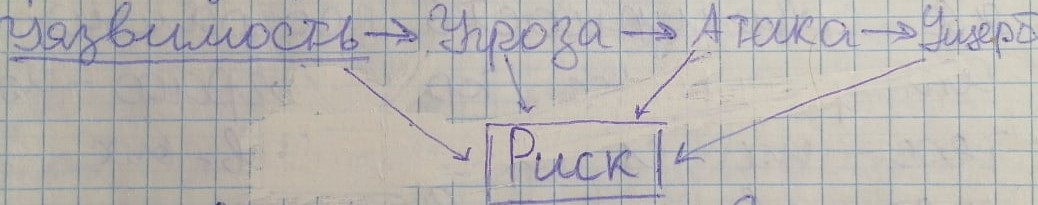 Уязвимость → Угроза → Атака → Ущерб
Риск